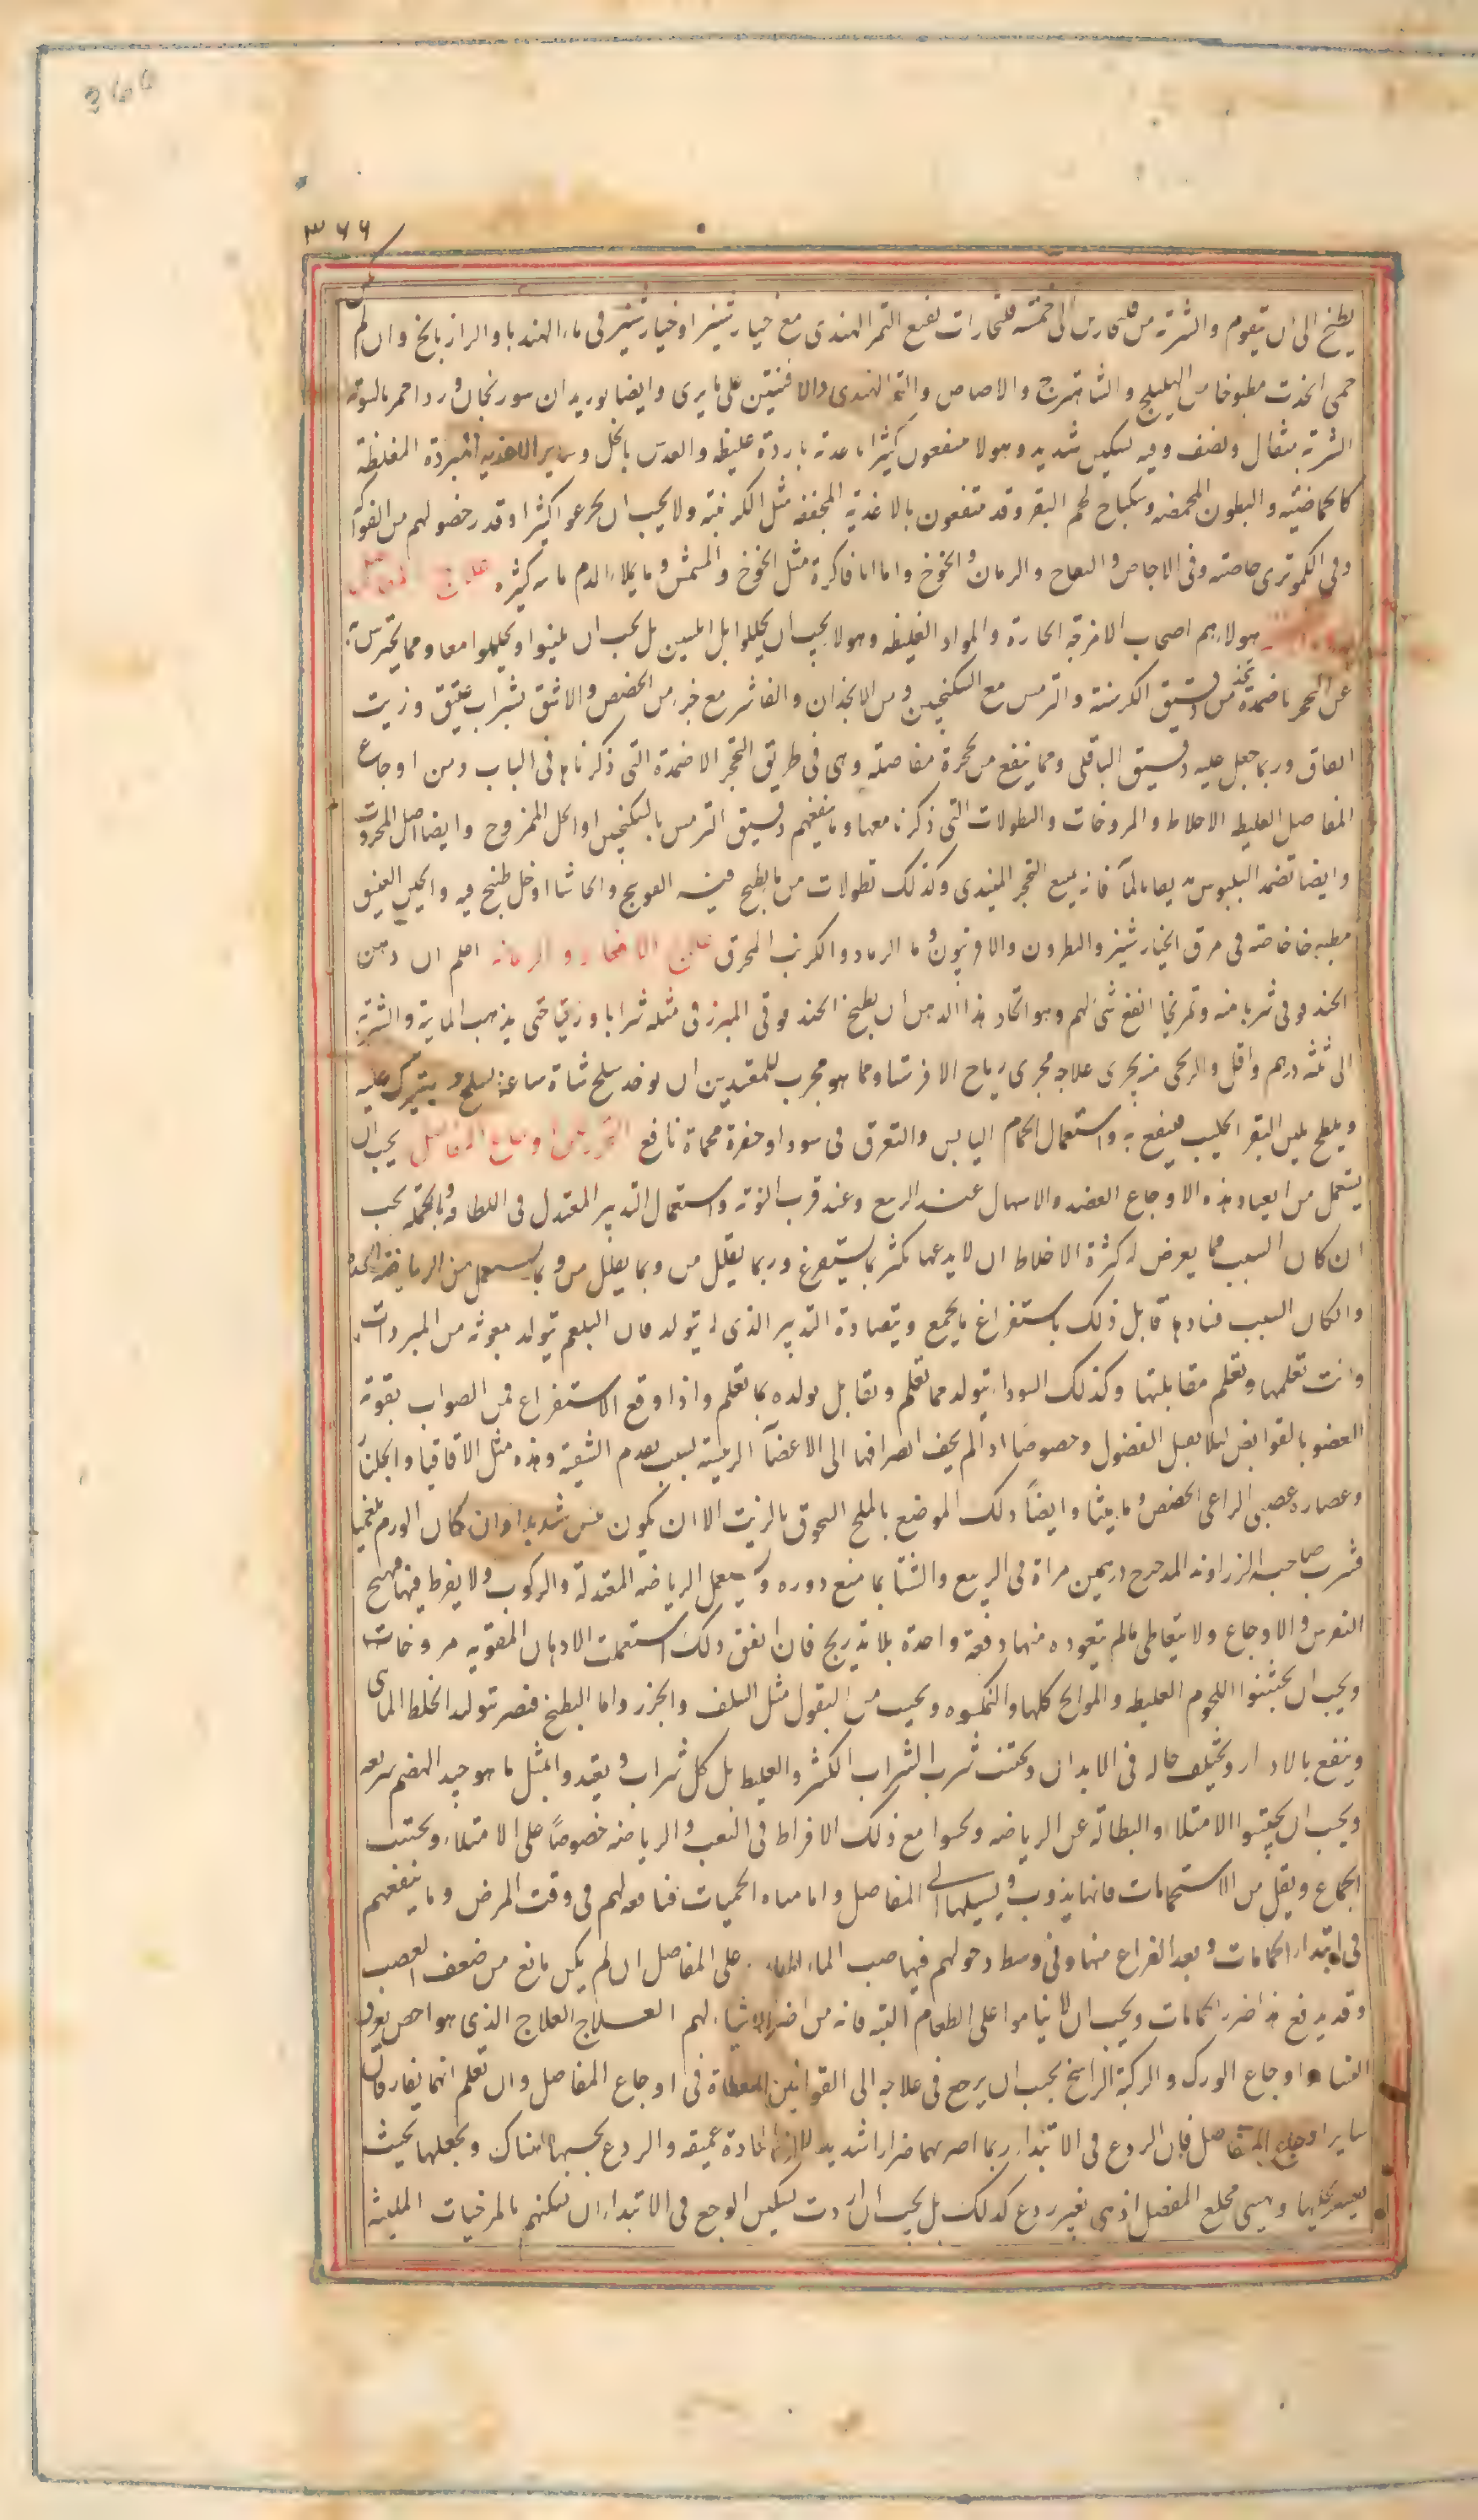 366
٣٦٦
يطبخ الى ان يقوم والشربة من فلنجارين الى خمسة فلنجارات نقيع التمر الهندى مع خيارشنبر او خيارشنبر فى ماء الهندبا والرازيانج وان لم يكن
حمى اتخذت مطبوخا من الهليلج والشاهترج والاجاص والتمر الهندى والافسنتين على ما يرى وايضا بوزيدان سورنجان ورد احمر بالسوية
الشربة مثقال ونصف وفيه تسكين شديد وهولا منتفعون كثيرا باغذية باردة غليظة والعدس بالخل وساير الاغذية المبردة المغلظة
كالحماضية والبطون المحمضة وسكباج لحم البقر وقد ينتفعون بالاغذية المجففة مثل الكرنبية ولا يجب ان يجرعوا كثيرا وقد رخص لهم من الفواكه
وفى الكمثرى خاصة وفى الاجاص والتفاح والرمان والخوخ واما انا فاكره مثل الخوخ والمشمش وما يملا الدم مائية كثيرة علاج
هولاء هم اصحاب الامزجة الحارة والمواد الغليظة وهولا يجب ان يحللوا بل التليين بل يجب ان يلينوا ويحللوا معا ومما يحترس به
عن التحجر ما ضمدة تتخذ من دقيق الكرسنة والترمس مع السكنجبين ومن الانجذان والفاشر مع خبز من الحضض والاشق بشراب عتيق وزيت
انفاق وربما جعل عليه دقيق الباقلى ومما ينفع من تحجرة مفاصله وهى فى طريق التحجر الاضمدة التى ذكرناها فى الباب ومن اوجاع
المفاصل الغليظة الاخلاط والمروخات والنطولات التى ذكرنا معها وما ينفعهم دقيق الترمس بالسكنجبين او الخل الممزوج وايضا اصل المحروث
وايضا تضمد البلبوس فانه يمنع التحجر المبتدى وكذلك نطولات من ما يطبخ فيه الفوتنج والحاشا او خل طبخ فيه والجبن العتيق
خاصة فى مرق الخنازير والنطرون والافربيون وماء الرماد والكرنب المحرق علاج اعلم ان دهن
الحندقوقى شربا منه وتمريخا انفع شى لهم وهو اتخاذ هذا الدهن ان يطبخ الحندقوقى المبزر فى مثله شرابا وزيتا حتى يذهب المائية والشربة
الى ثلثة درهم واقل والريحى منه يجرى علاجه مجرى رياح الافرسة ومما هو مجرب للمقعدين ان يوخذ سلخ شاة ساعة يسلخ ويترك عليه
ويلطخ بلبن البقر الحليب فينفع به واستعمال الحمام اليابس والتعرق فى سودا وحفرة محماة نافع التحرز من اوجاع المفاصل يجب ان
يستعمل من اعتاد هذه الاوجاع الفصد والاسهال عند الربيع وعند قرب النوبة واستعمال التدبير المعتدل فى اللطافة وبالجملة يجب
ان كان السبب مما يعرض له كثرة الاخلاط ان لا يدعها تكثر بما يستفرغ وربما يقلل من وبما يقلل من وبما يستعمل من الرياضة
وان كان السبب فسادها قابل ذلك باستفراغ ما يجمع وبمضادة التدبير الذى له يتولد فان البلغم يتولد بمعونة من المبردات
وانت تعلمها وتعلم مقابلتها وكذلك السودا يتولد مما تعلم ويقابل تولده بما تعلم واذا وقع الاستفراغ فمن الصواب بقوة
العضو بالقوابض لئلا يقبل الفضول وخصوصا اذا لم يخف انصرافها الى الاعضآ الرئيسة لسبب عدم التنقية وهذه مثل الاقاقيا والجلنآ
وعصارة عصى الراعى الحضض وماميثا وايضآ دلك الموضع بالملح المسحوق بالزيت الا ان يكون يبس شديد وان كان الورم بلغميا
فشرب صاحبه الزراوند المدحرج درهمين مراة فى الربيع والشتا بما منع دوره ويستعمل الرياضة المعتدلة والركوب ولا يفرط فيها فيهيج
النقرس والاوجاع ولا يتعاطى ما لم يتعوده منها دفعة واحدة بلا تدريج فان اتفق ذلك استعملت الادهان المقوية مروخات
ويجب ان يجتنبوا اللحوم الغليظة والموالح كلها والنمكسود ويجب من البقول مثل السلق والجزر واما البطيخ فيضر بتولد الخلط المائى
وينفع بالادرار ويختلف حاله فى الابدان ويجتنب شرب الشراب الكثير والغليظ بل كل شراب ويغتذوا بمثل ما هو جيد الهضم سريعه
ويجب ان يجتنبوا الامتلاء والبطالة عن الرياضة ويحسوا مع ذلك الافراط فى التعب والرياضة خصوصآ على الامتلاء ويجتنب
الجماع ويقل من الاستحمامات فانها يذوب ويسيلها الى المفاصل واما مياه الحميات فنافعة لهم فى وقت المرض وما ينفعهم
فى ابتداء الحمامات وبعد الفراغ منها وفى وسط دخولهم فيها صب الماء على المفاصل ان لم يكن مانع من ضعف العصب
وقد يدفع هذا ضرر الحمامات ويجب ان لا يناموا على الطعام البتة فانه من اضر الاشياء لهم العلاج العلاج الذى هو اخص بعرق
النسا واوجاع الورك والركبة الراسخ يجب ان يرجع فى علاجه الى القوانين المعطاة فى اوجاع المفاصل وان تعلم انهما يفارقان
ساير اوجاع المفاصل فان الردع فى الابتداء ربما اضر بهما ضرارا شديدا لان المادة عميقة والردع يحبسها هناك ويجعلها بحيث
يعسر تحليلها ويهيى مخلع المفصل اذى بغير ردع كذلك بل يجب ان اردت تسكين الوجع فى الابتداء ان تسكنهم بالمرخيات الملينة